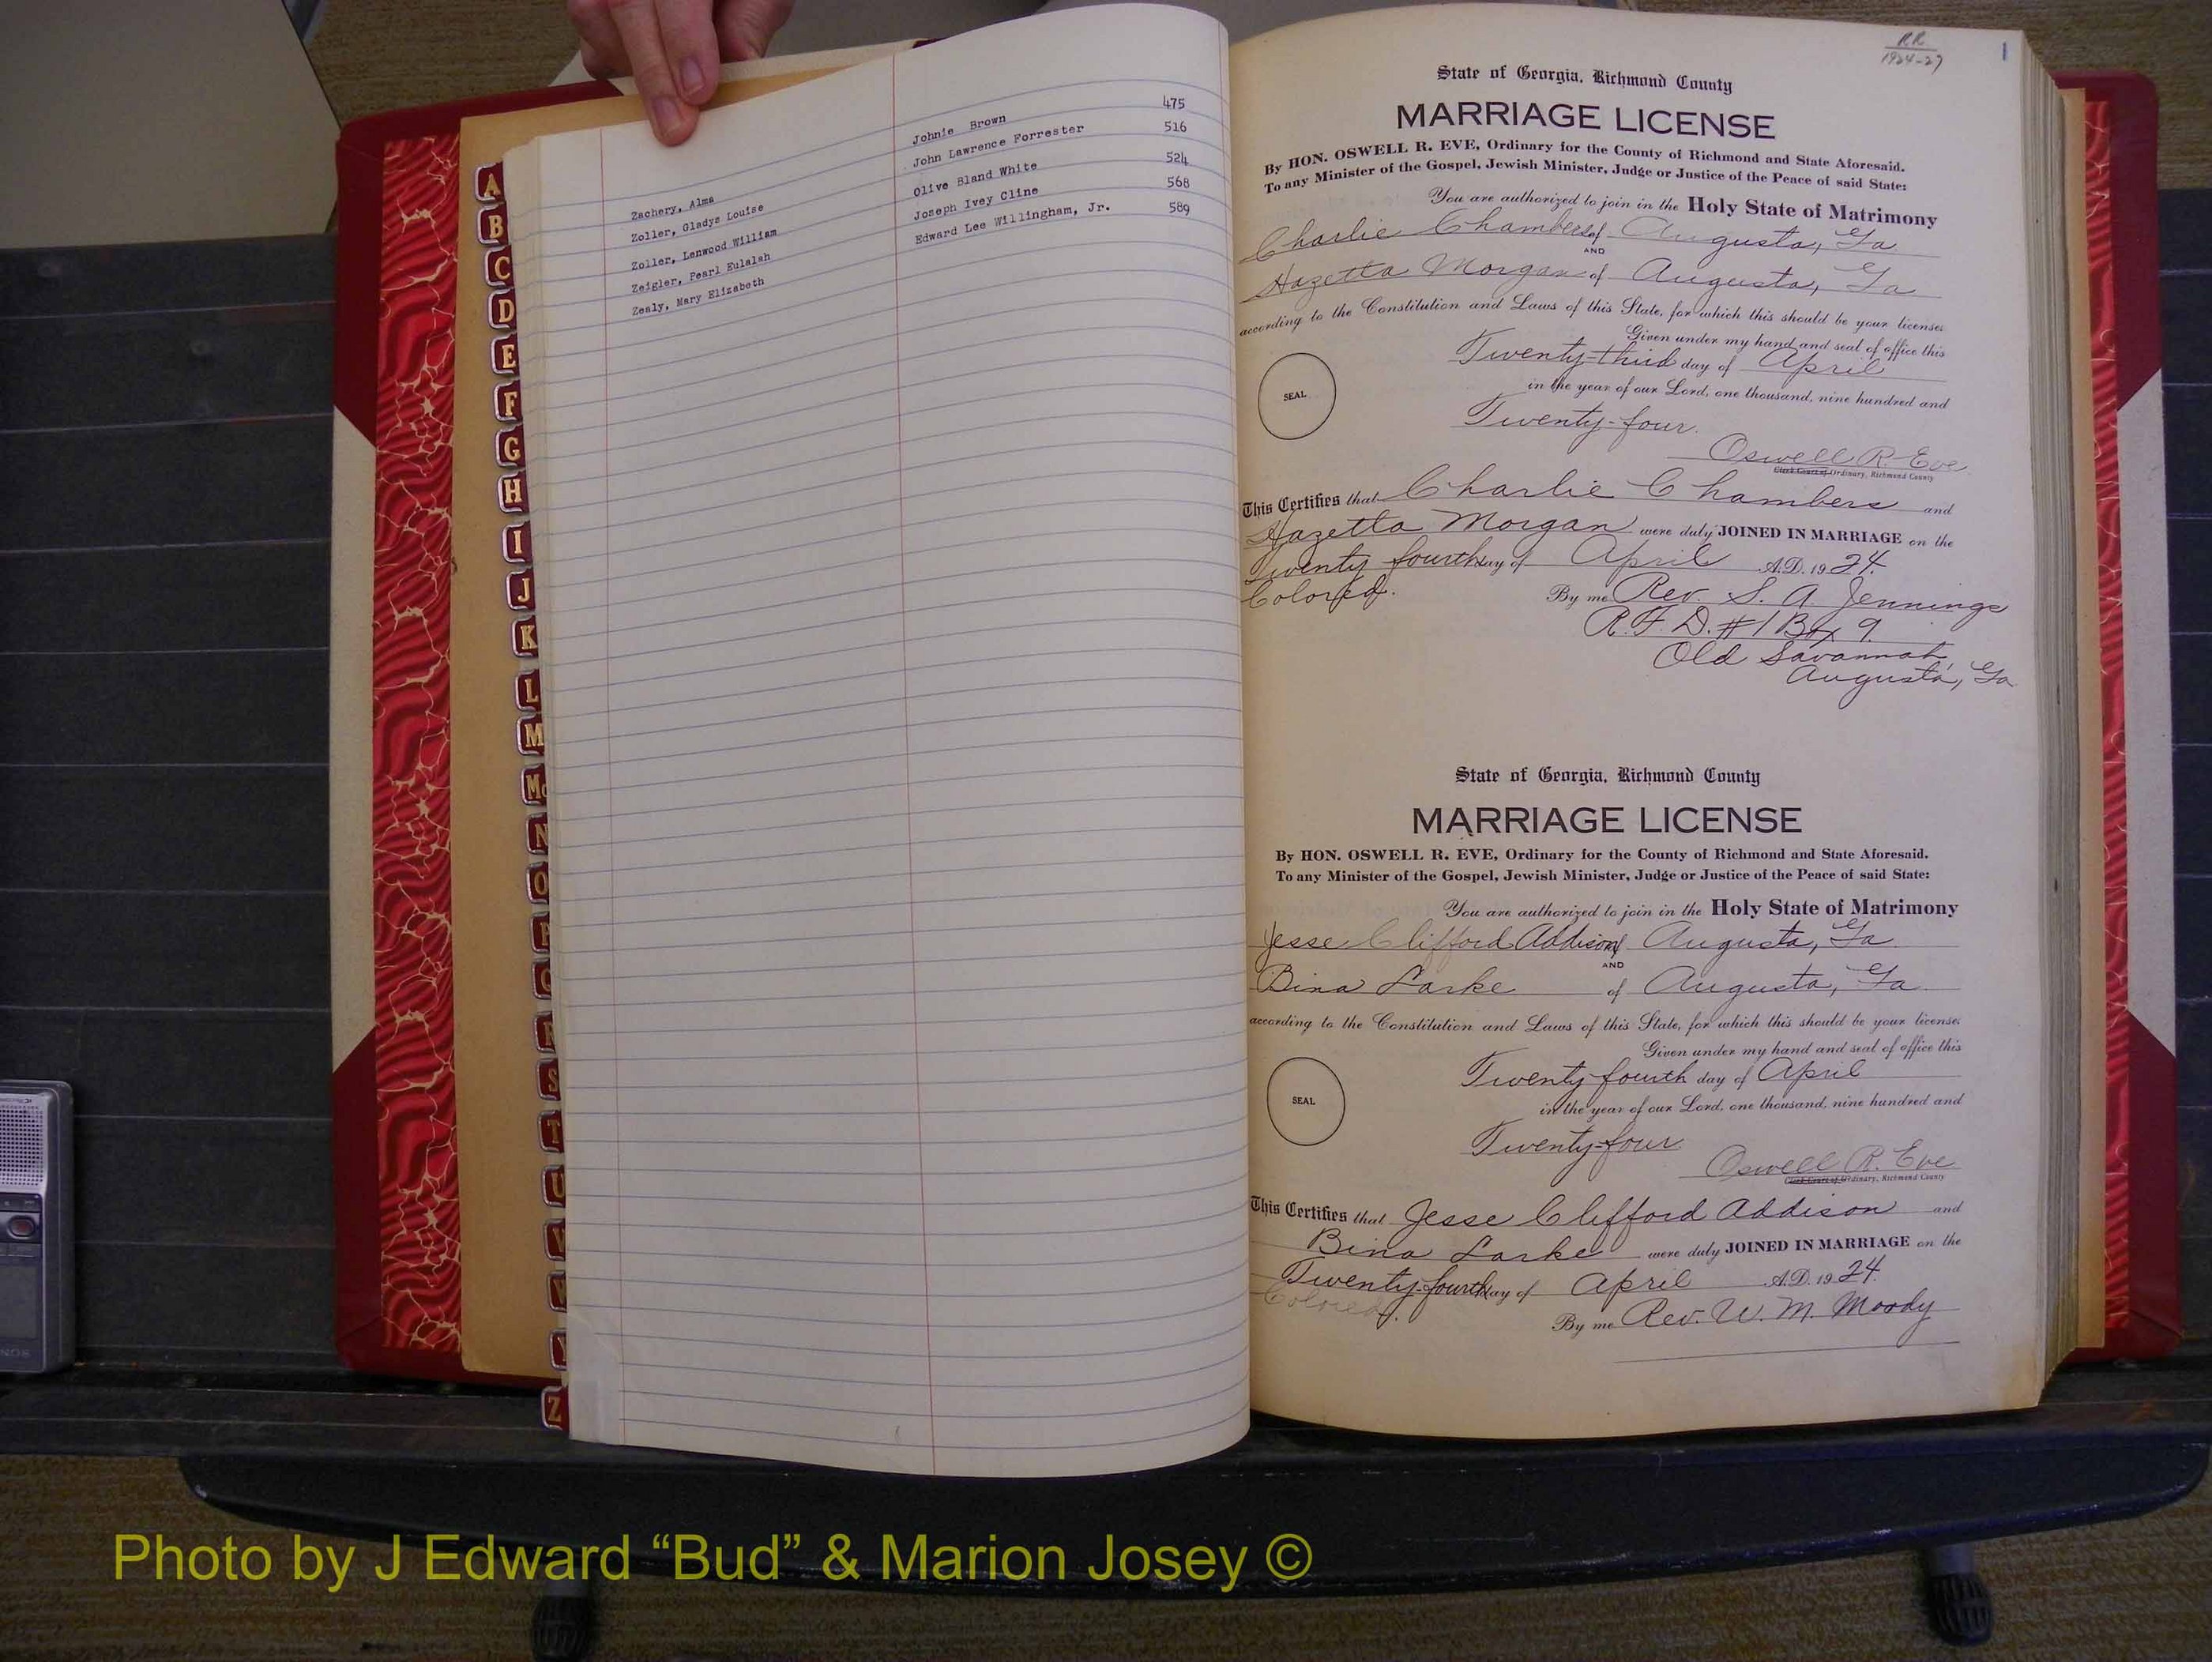 Zachery, Alma Johnie Brown 475
Zoller, Gladys Louise John Lawrence Forrester 516
Zoller, Lenwood William Olive Bland White 524
Zeigler, Pearl Eulalah Joseph Ivey Cline 568
Zealy, Mary Elizabeth Edward Lee Willingham, Jr. 589
A
B
C
D
E
F
G
H
I
J
K
L
M
Mc
N
O
P
Q
R
S
T
U
V
W
Y
Z
RR
1924-27
1
State of Georgia, Richmond County
MARRIAGE LICENSE
By HON. OSWELL R. EVE, Ordinary for the County of Richmond and State Aforesaid.
To any Minister of the Gospel, Jewish Minister, Judge or Justice of the Peace of said State:
You are authorized to join in the Holy State of Matrimony
Charlie Chambers of Augusta, Ga
AND
Hazetta Morgan of Augusta, Ga
according to the Constitution and Laws of this State, for which this should be your license.
Given under my hand and seal of office this
Twenty-third day of April
SEAL
in the year of our Lord, one thousand, nine hundred and
Twenty-four.
Oswell R. Eve
Clerk Court of Ordinary, Richmond County
This Certifies that Charlie Chambers and
Hazetta Morgan were duly JOINED IN MARRIAGE on the
Twenty fourth day of April A.D. 1924.
Colored. By me Rev. S. A. Jennings
R.F.D. #1 Box 9
Old Savannah
Augusta, Ga
State of Georgia, Richmond County
MARRIAGE LICENSE
By HON. OSWELL R. EVE, Ordinary for the County of Richmond and State Aforesaid.
To any Minister of the Gospel, Jewish Minister, Judge or Justice of the Peace of said State:
You are authorized to join in the Holy State of Matrimony
Jesse Clifford Addison of Augusta, Ga
AND
Bina Larke of Augusta, Ga
according to the Constitution and Laws of this State, for which this should be your license.
Given under my hand and seal of office this
Twenty-fourth day of April
SEAL
in the year of our Lord, one thousand, nine hundred and
Twenty-four
Oswell R. Eve
Clerk Court of Ordinary, Richmond County
This Certifies that Jesse Clifford Addison and
Bina Larke were duly JOINED IN MARRIAGE on the
Twenty-fourth day of April A.D. 1924.
Colored. By me Rev. W. M. Moody
Photo by J Edward “Bud” & Marion Josey ©